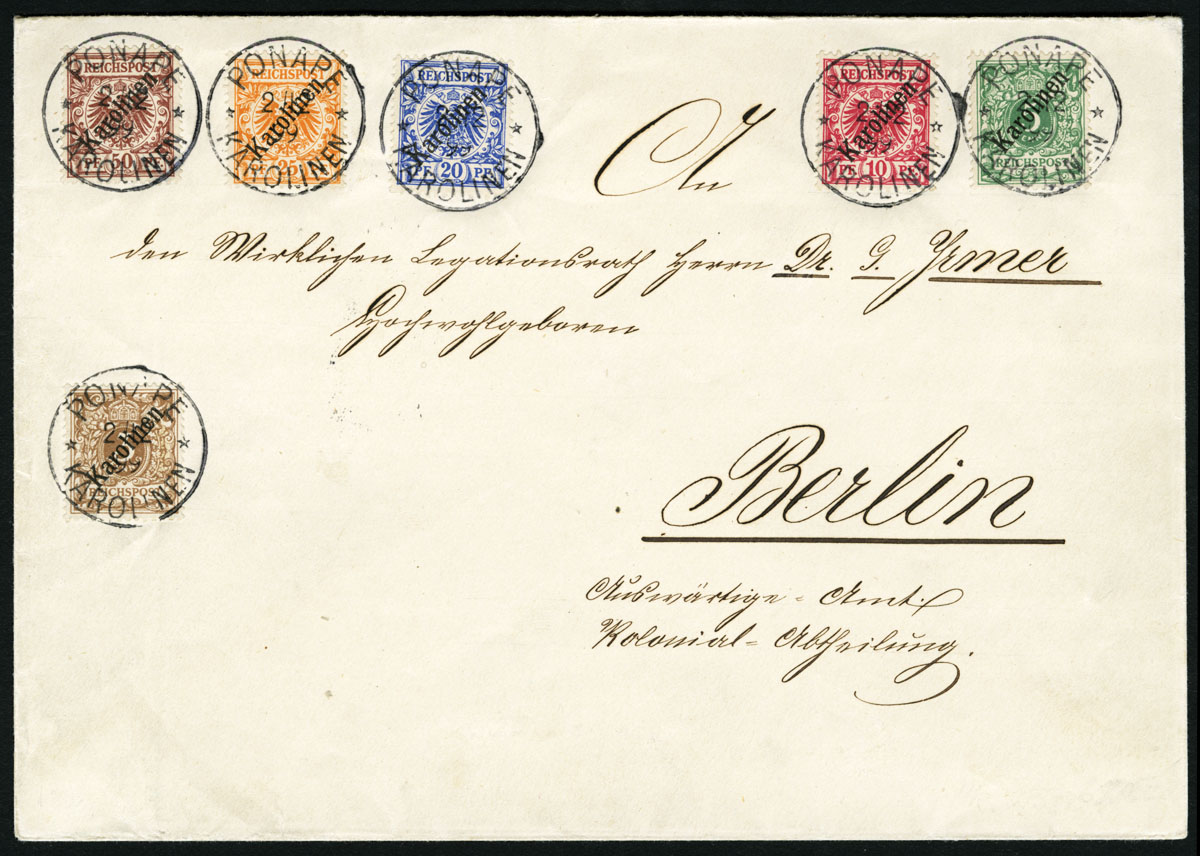 PONAPE
KAROLINEN
REICHSPOST
Karolinen
PF 50
PONAPE
KAROLINEN
REICHSPOST
Karolinen
25
PONAPE
KAROLINEN
REICHSPOST
Karolinen
PF. 20 PF.
PONAPE
KAROLINEN
REICHSPOST
Karolinen
PF. 10 PF.
PONAPE
KAROLINEN
Karolinen
5
REICHSPOST
An
den Wirklichen Legationsrath Herrn Dr. G. Yrmer
Hochwohlgeboren
PONAPE
KAROLINEN
Karolinen
REICHSPOST
Berlin
Auswärtige = Amt.
Kolonial = Abtheilung.